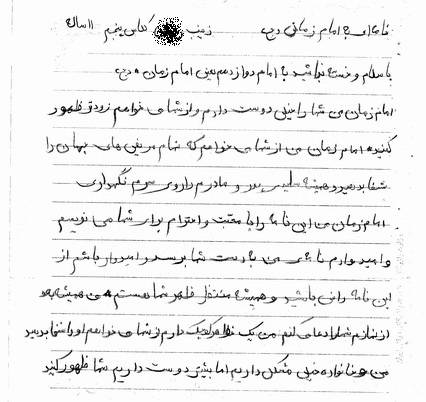 نامه ای به امام زمان (عج) زینب کلاس پنجم ۱۱ ساله
با سلام و خسته نباشید به امام دوازدهم یعنی امام زمان (عج)
امام زمان من شما را خیلی دوست دارم و از شما می خواهم زودتر ظهور
کنید امام زمان من از شما می خواهم که تمام مریض های جهان را
شفا بدهید و همیشه پدر و مادرم را روی سرم نگهداری
امام زمان من این نامه را با محبت و احترام برای شما می نویسم
و امیدوارم نامه ی من به دست شما برسد و امیدوار باشم از
این نامه راضی باشید و همیشه منتظر ظهور شما هستم من همیشه بعد
از نمازم شما را دعا می کنم من یک خواهر کوچک دارم از شما می خواهم او را شفا بدهید
من و خانواده خیلی مشکل داریم اما بیشتر دوست داریم شما ظهور کنید